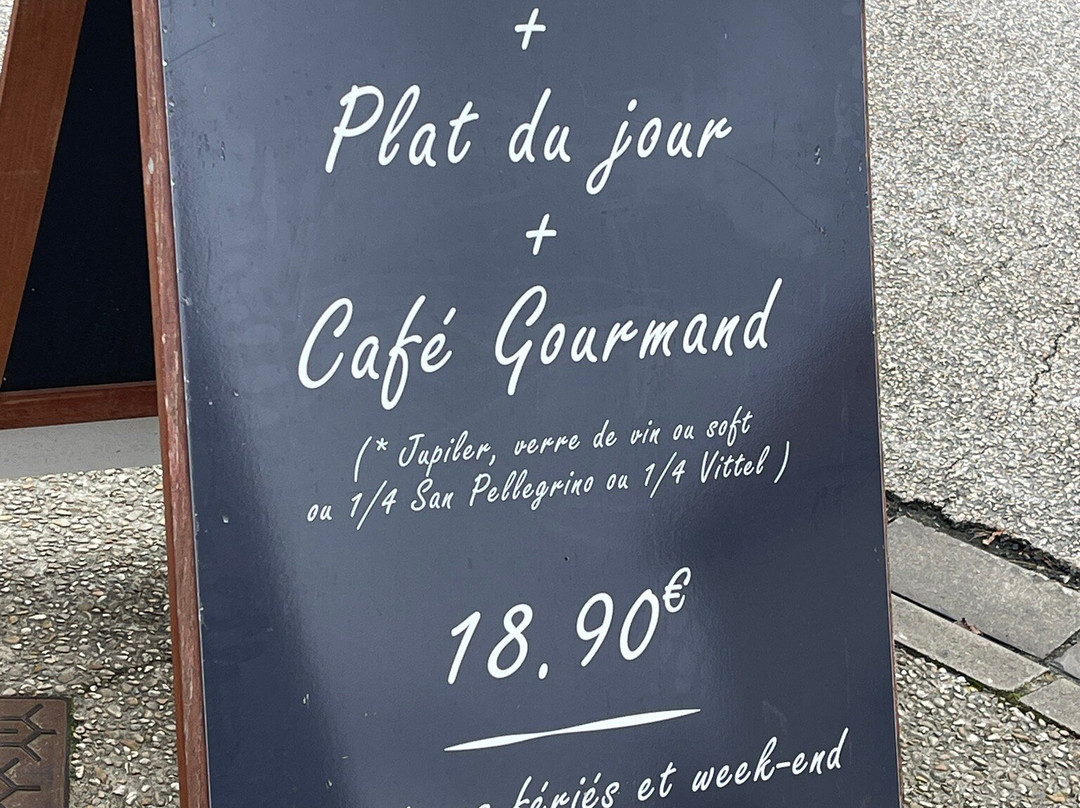 +
Plat du jour
+
Café Gourmand
(* Jupiler, verre de vin ou soft
ou 1/4 San Pellegrino ou 1/4 Vittel )
18.90€
fériés et week-end